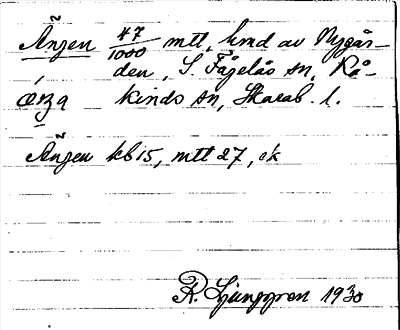 Änjen 47/1000 mtl, hmd av Nygår-
den, S. Fågelås sn, Kå-
kinds sn, Skarab. l.
Änjen kb 15, mtl 27, ek
R. Ljunggren 1930